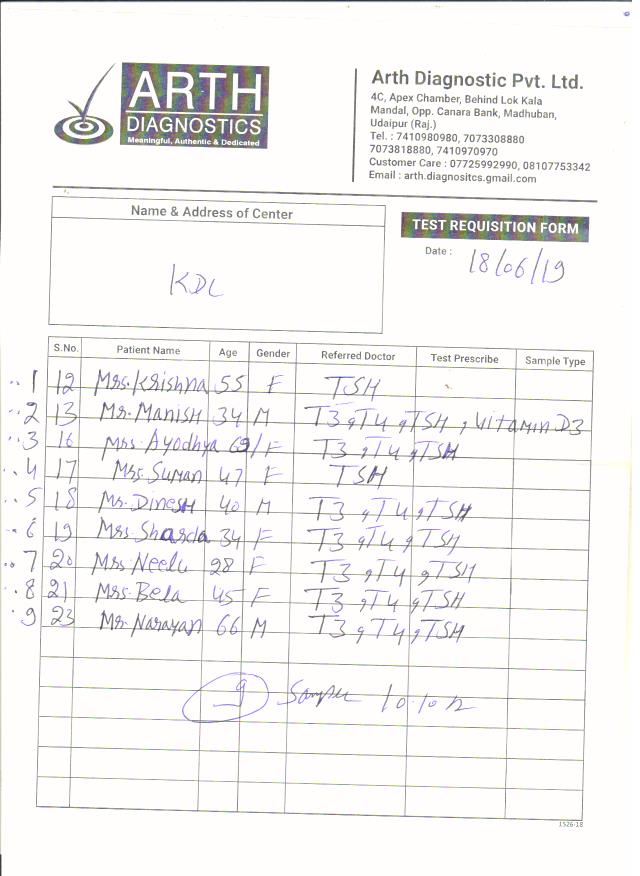 ARTH
DIAGNOSTICS
Meaningful, Authentic & Dedicated
Arth Diagnostic Pvt. Ltd.
4C, Apex Chamber, Behind Lok Kala
Mandal, Opp. Canara Bank, Madhuban,
Udaipur (Raj.)
Tel. : 7410980980, 7073308880
7073818880, 7410970970
Customer Care : 07725992990, 08107753342
Email : arth.diagnositcs.gmail.com
Name & Address of Center
KDL
TEST REQUISITION FORM
Date : 18/06/19
S.No. Patient Name Age Gender Referred Doctor Test Prescribe Sample Type
1 12 Mrs. Krishna 55 F TSH
2 13 Mr. Manish 34 M T3, T4, TSH, Vitamin D3
3 16 Mrs. Ayodhya 69/F T3, T4, TSH
4 17 Mrs. Suman 47 F TSH
5 18 Mr. Dinesh 40 M T3, T4, TSH
6 19 Mrs. Sharda 34 F T3, T4, TSH
7 20 Mrs. Neelu 28 F T3, T4, TSH
8 21 Mrs. Bela 45 F T3, T4, TSH
9 23 Mr. Narayan 66 M T3, T4, TSH
9
1526-18